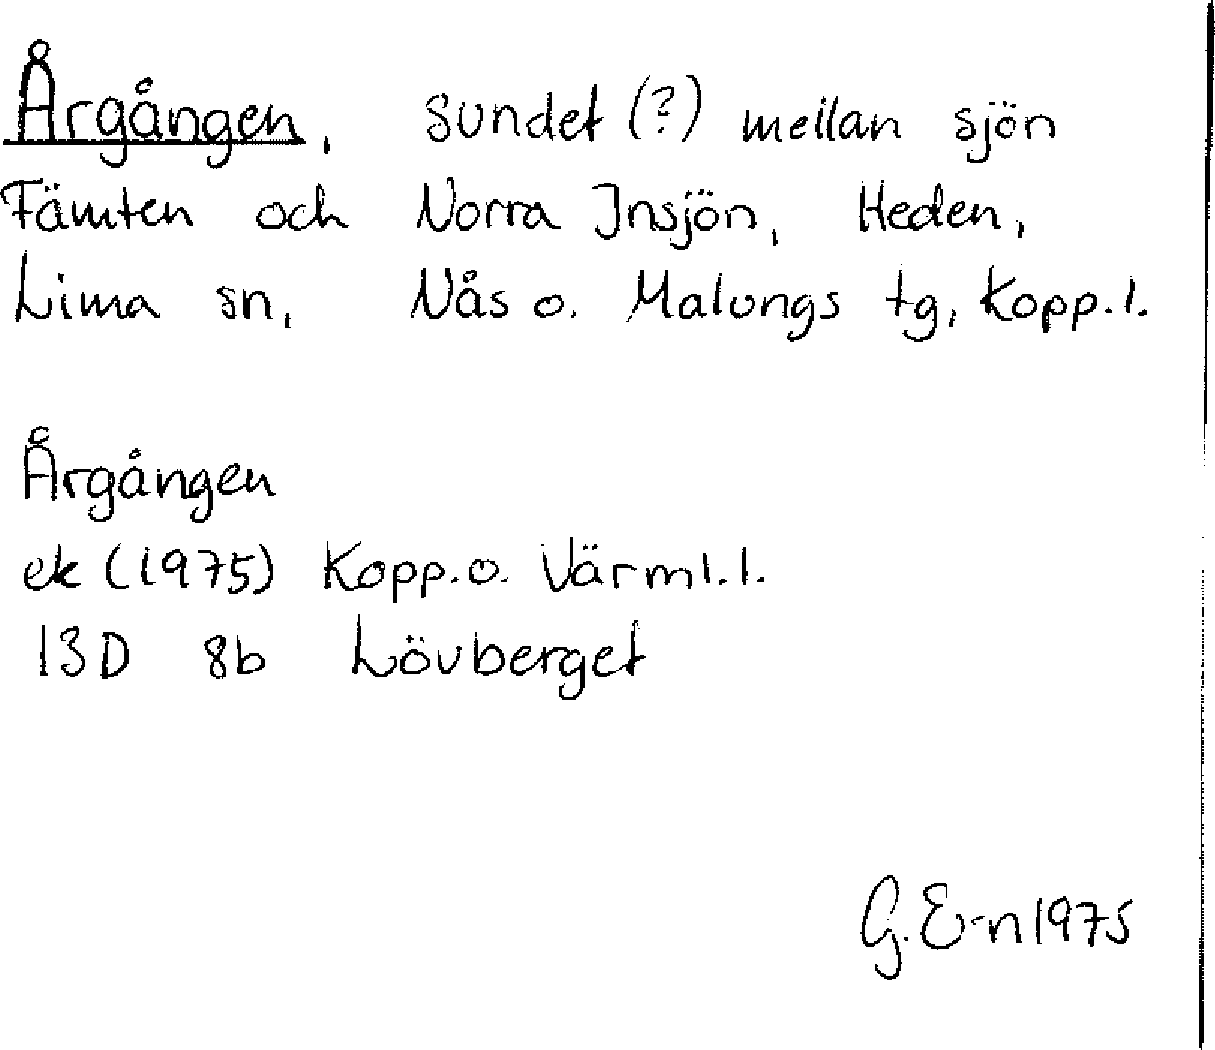 Årgången, sundet (?) mellan sjön
Fämten och Norra Insjön, Heden,
Lima sn, Nås o. Malungs tg, Kopp.l.
Årgången
ek (1975) Kopp.o. Värml.l.
13D 8b Lövberget
G.E-n 1975